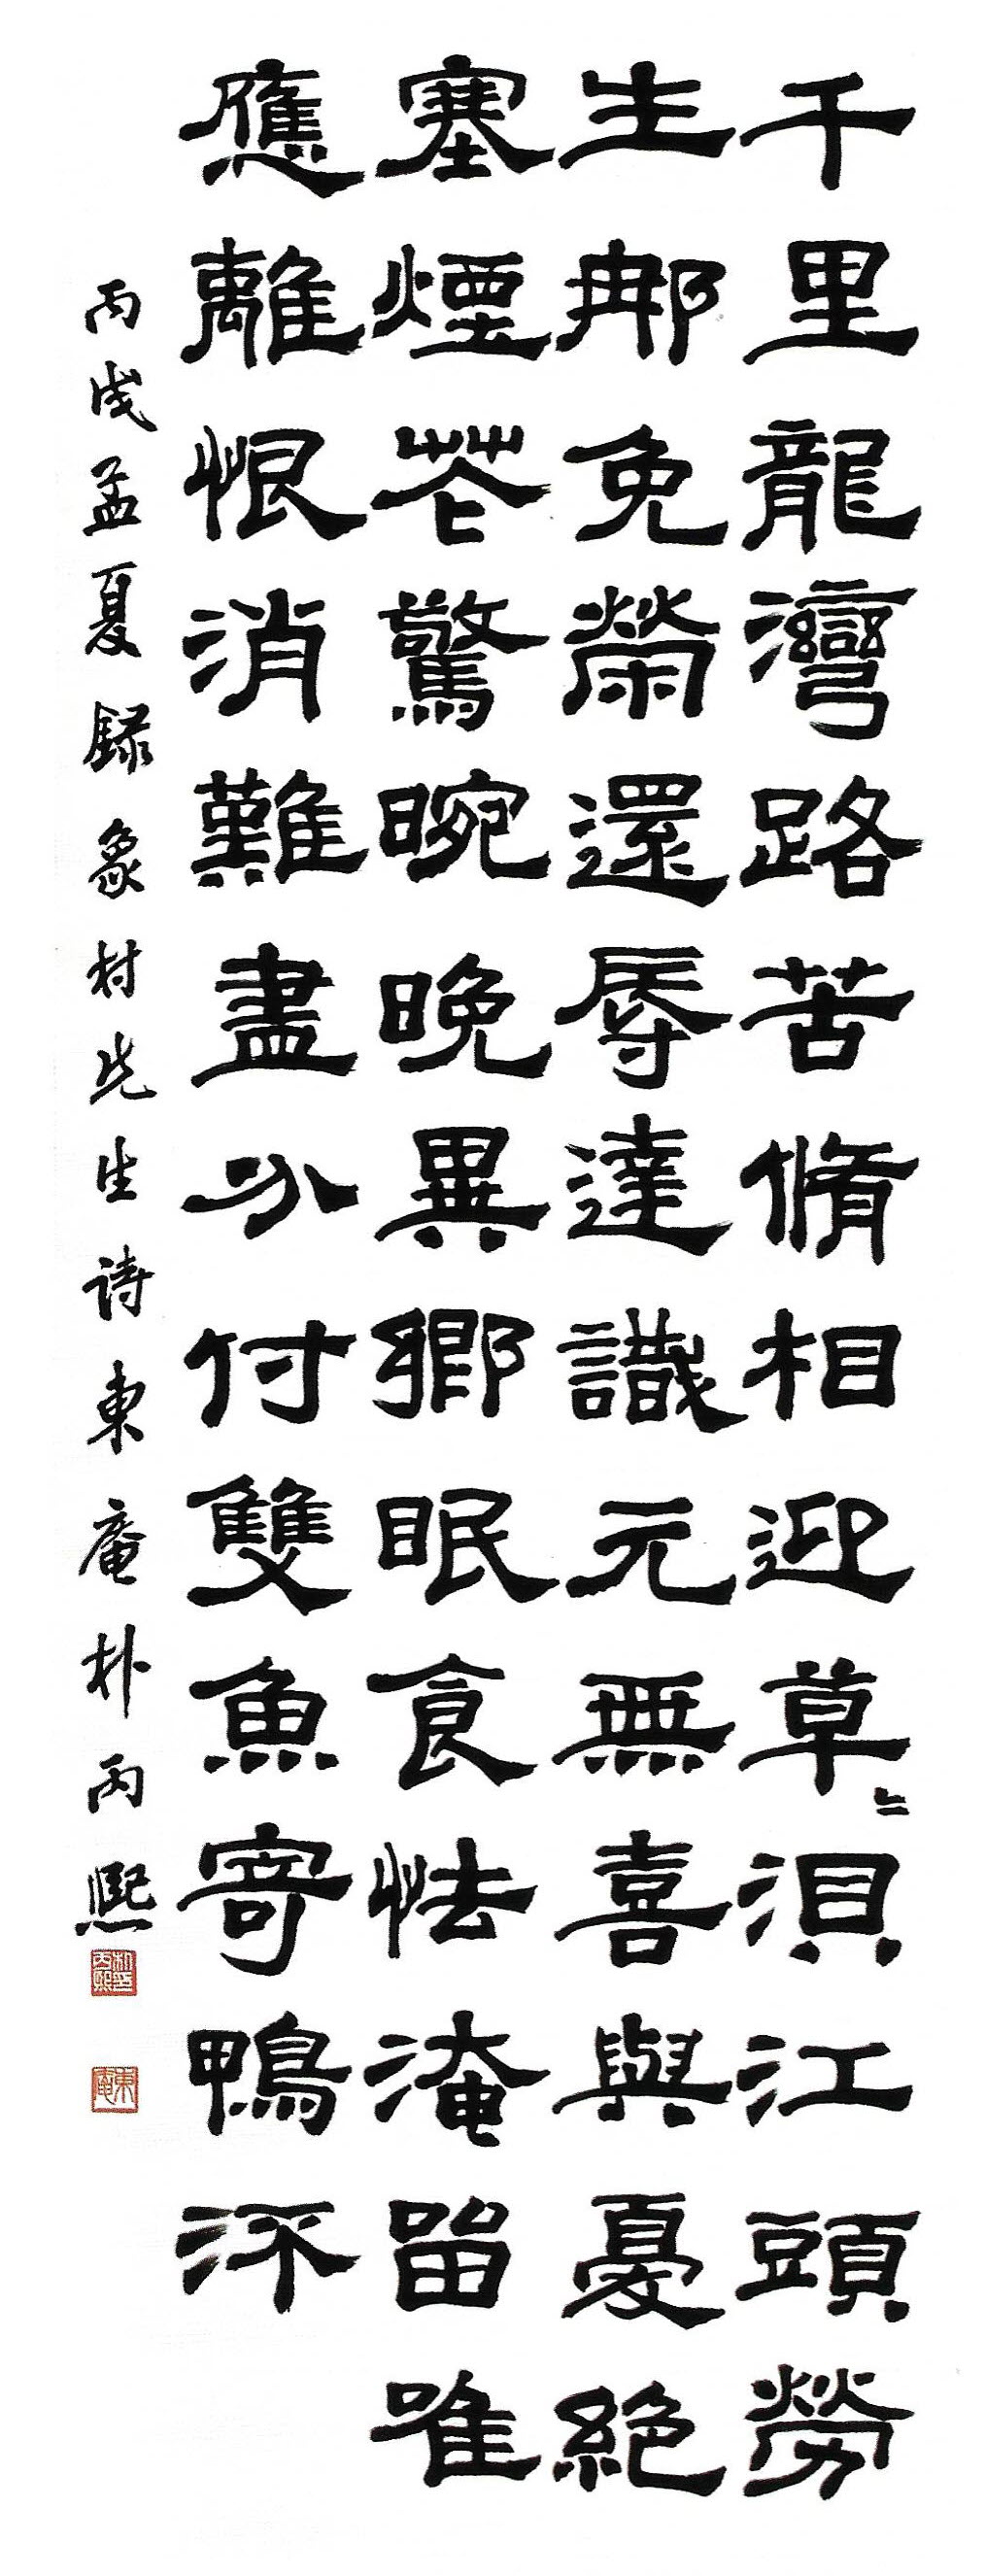 千里龍灣路苦脩相迎草〻浿江頭勞
生那免榮還辱達識元無喜與憂絕
塞煙花驚晼晚異鄉眠食怯淹留唯
應離恨消難盡分付雙魚寄鴨㳅
丙戌孟夏録象村先生詩東庵朴丙熙
朴印丙熙
東庵